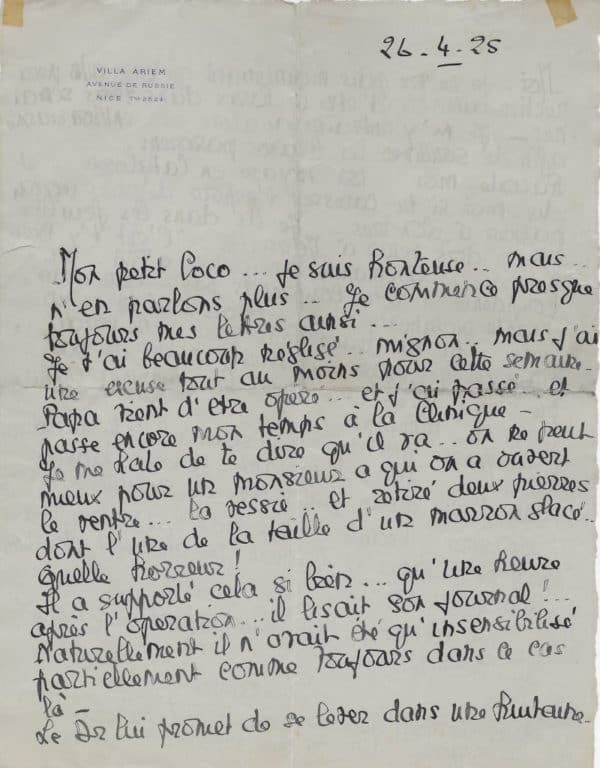 26-4-25
VILLA ARIEM
AVENUE DE RUSSIE
NICE
Mon petit Coco... Je suis honteuse.. mais..
n'en parlons plus.. Je commence presque
toujours mes lettres ainsi...
Je t'ai beaucoup négligé.. mignon.. mais j'ai
une excuse tout au moins pour cette semaine..
Papa vient d'etre opéré.. et j'ai passé.. et
passe encore mon temps à la clinique -
Je me hate de te dire qu'il va.. on ne peut
mieux pour un monsieur a qui on a ouvert
le ventre... la vessie.. et retiré deux pierres
dont l'une de la taille d'un marron glacé..
quelle horreur!
Il a supporté cela si bien... qu'une heure
après l'operation... il lisait son journal!..
Naturellement il n'avait été qu'insensibilisé
partiellement comme toujours dans ce cas
là -
Le Dr lui promet de se lever dans une